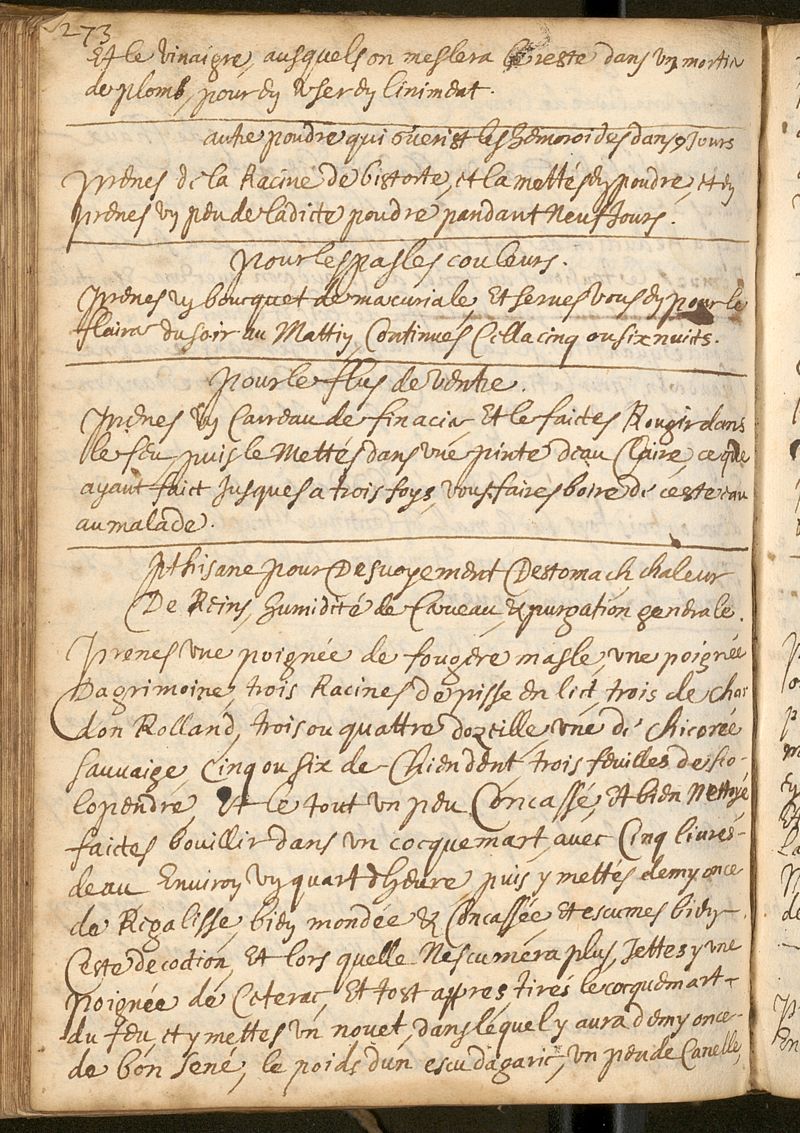 273
Et le vinaigre, ausquels on meslera le reste dans un mortier
de plomb, pour en user en liniment.
autre poudre qui guerist les hemoroides dans 9 Jours
Prenes de la Racine de bistorte, et la mettés en poudre, et en
prenes un peu de ladicte poudre pandant Neuf Jours.
Pour les pasles couleurs.
Prenes un boucquet de mercuriale, Et serves vous en pour le
flairer du soir au Mattin, Continues Cella cinq ou six nuits.
Pour le flus de ventre.
Prenes un Carreau de fin acier, Et le faictes Rougir dans
le feu, puis le Mettés dans une pinte deau Claire, ce que
ayant faict Jusques a trois foys, vous faires boire de ceste eau
au malade.
Pthisane pour Desvoyement Destomach, chaleur
De Reins, humidité de Cerveau, & purgation generale.
Prenes une poignée de fougere masle, une poignée
Dagrimoine, trois Racines de pisse en lict, trois de char
don Rolland, trois ou quattre dozeille, une de chicorée
sauvaige, Cinq ou six de Chiendent, trois feuilles de sco-
lopendre, Et le tout un peu Concassé, Et bien Nettoyé
faictes bouillir dans un cocquemart, avec Cinq livres
deau Environ un quart dheure, puis y mettés demy once
de Regalisse, bien mondée & Concassée, Et escumes bien
Ceste decoction, Et lors quelle Nescumera plus, Jettes y une
poignée de Ceterac, Et tost appres tires le cocquemart
du feu, et y mettes un nouet, dans lequel y aura demy once
de bon sené, le poids dun escu dagaric, un peu de Canelle,